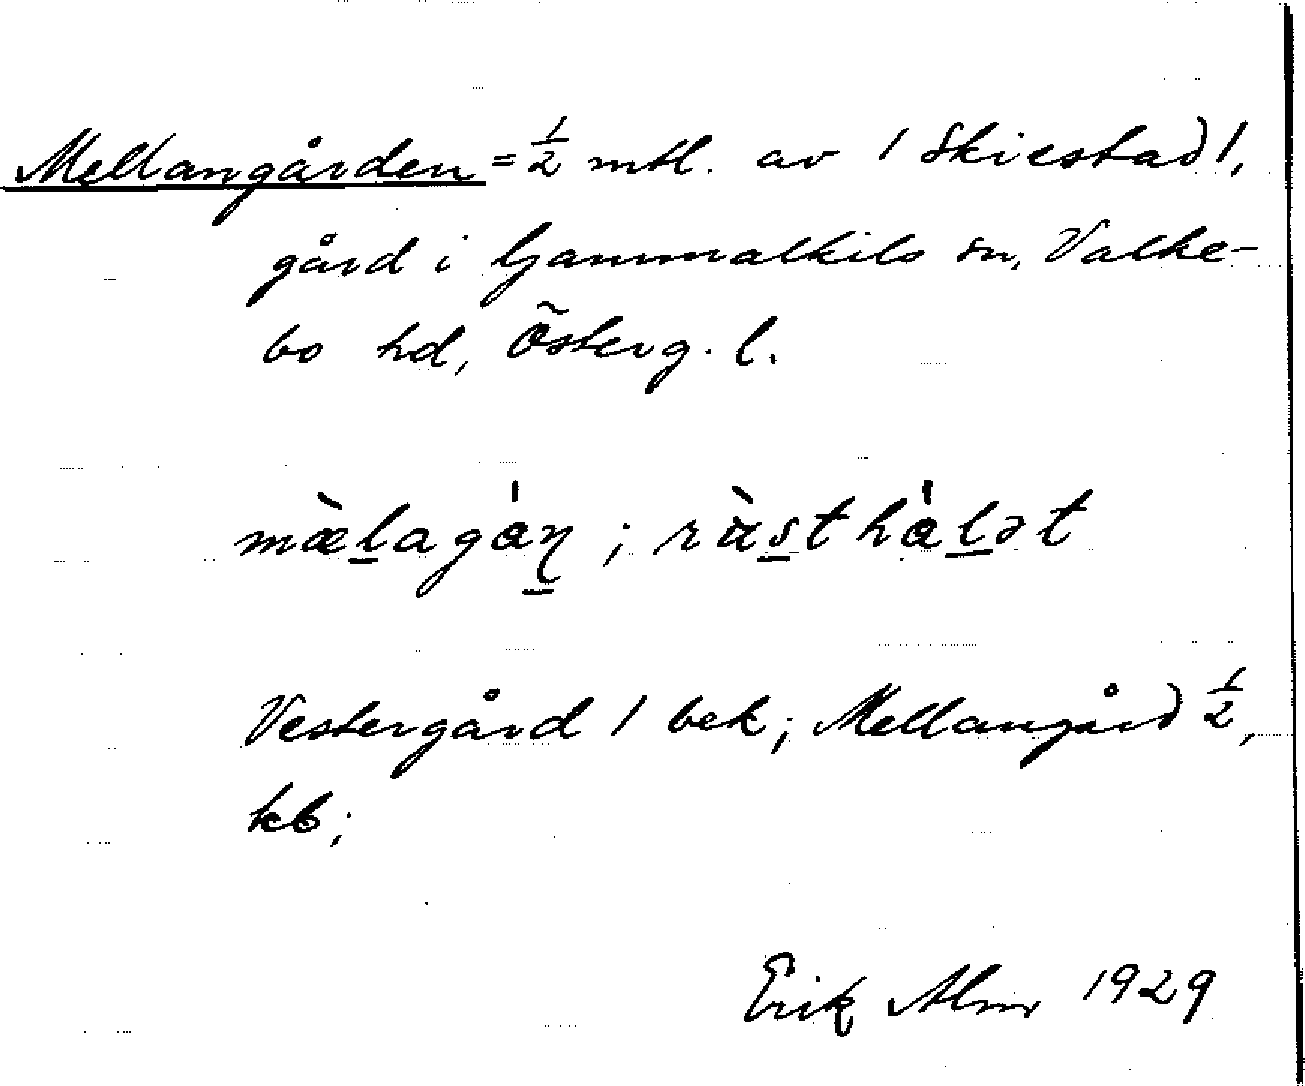 Mellangården = ½ mtl. av / Skiestad /,
gård i Gammalkils sn, Valke-
bo hd, Österg. l.
mæ̀lagán ; ràsthálət
Vestergård 1 bek; Mellangård ½,
kb;
Erik Alm 1929